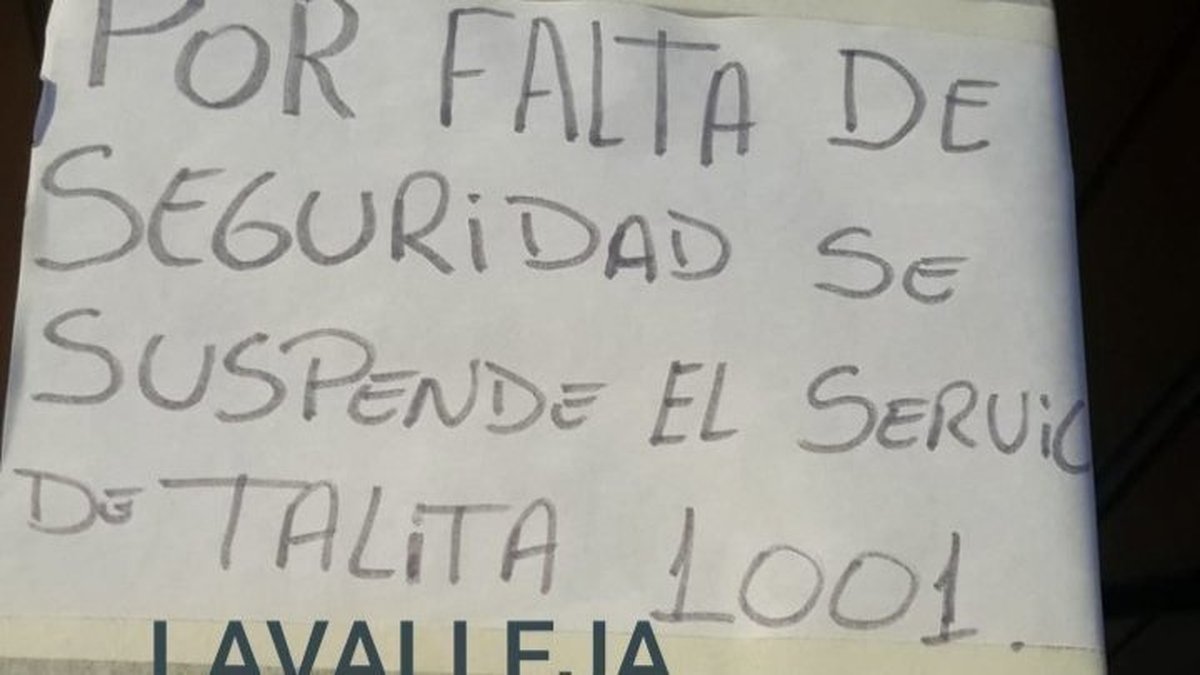 POR FALTA DE
SEGURiDAD SE
SUSPENDE EL SERViC
DE TALiTA 1001.
LAVALLEJA